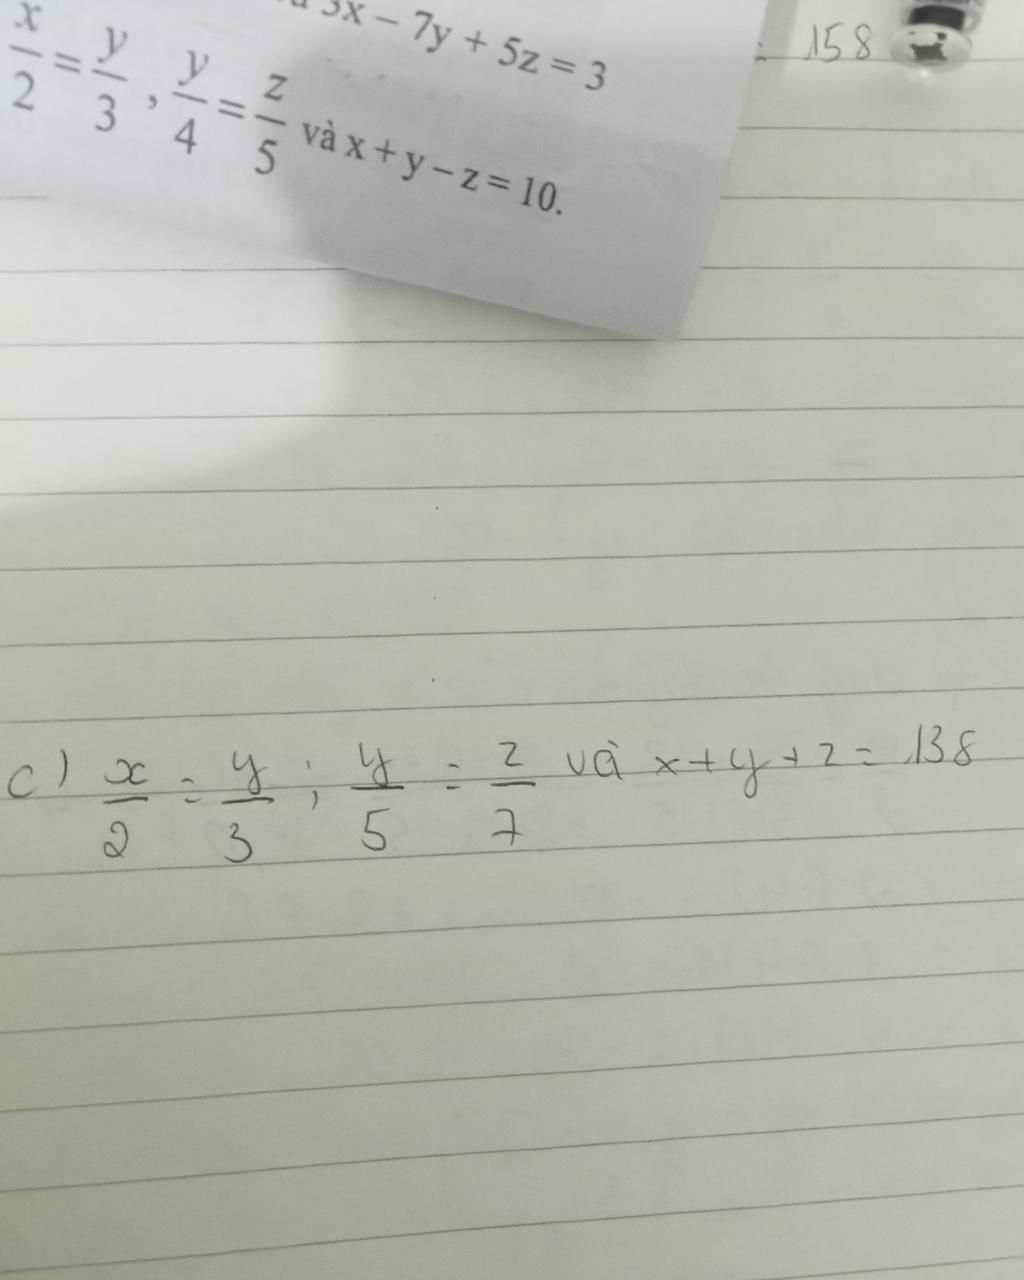 3x – 7y + 5z = 3
= 158
x/2 = y/3 , y/4 = z/5 và x + y – z = 10.
c) x/2 = y/3 ; y/5 = z/7 và x + y + z = 138